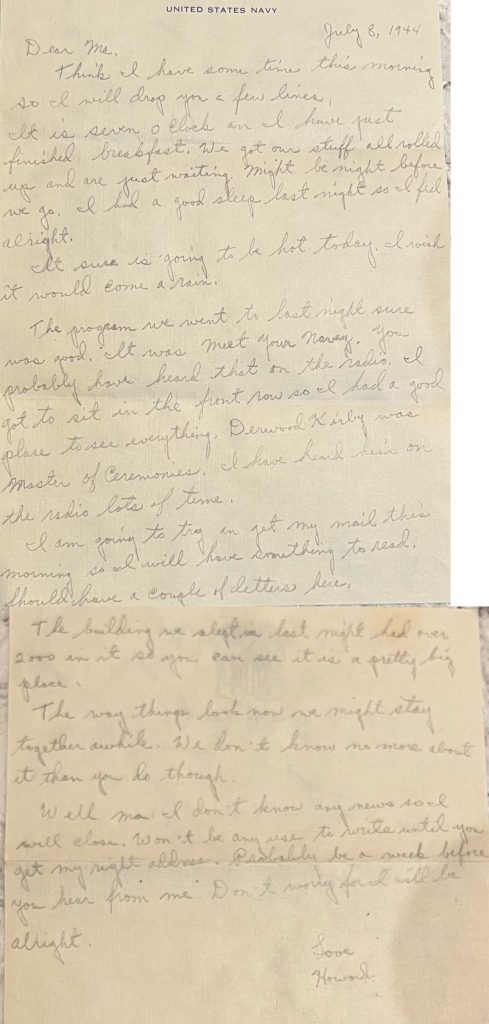 UNITED STATES NAVY
July 8, 1944
Dear Ma,
Think I have some time this morning
so I will drop you a few lines,
It is seven o clock an I have just
finished breakfast. We got our stuff all rolled
up and are just waiting. Might be night before
we go. I had a good sleep last night so I feel
alright.
It sure is going to be hot today. I wish
it would come a rain.
The program we went to last night sure
was good. It was Meet Your Navey. You
probably have heard that on the radio. I
got to sit in the front row so I had a good
place to see everything. Derwood Kirby was
Master of Ceremonies. I have heard him on
the radio lots of time.
I am going to try an get my mail this
morning so I will have something to read.
Should have a couple of letters here.
The building we slept in last night had over
2000 in it so you can see it is a pretty big
place.
The way things look now we might stay
together awhile. We don't know no more about
it than you do though.
Well ma I don't know any news so I
will close. Won't be any use to write until you
get my right address. Probably be a week before
you hear from me. Don't worry for I will be
alright.
Love
Howard.